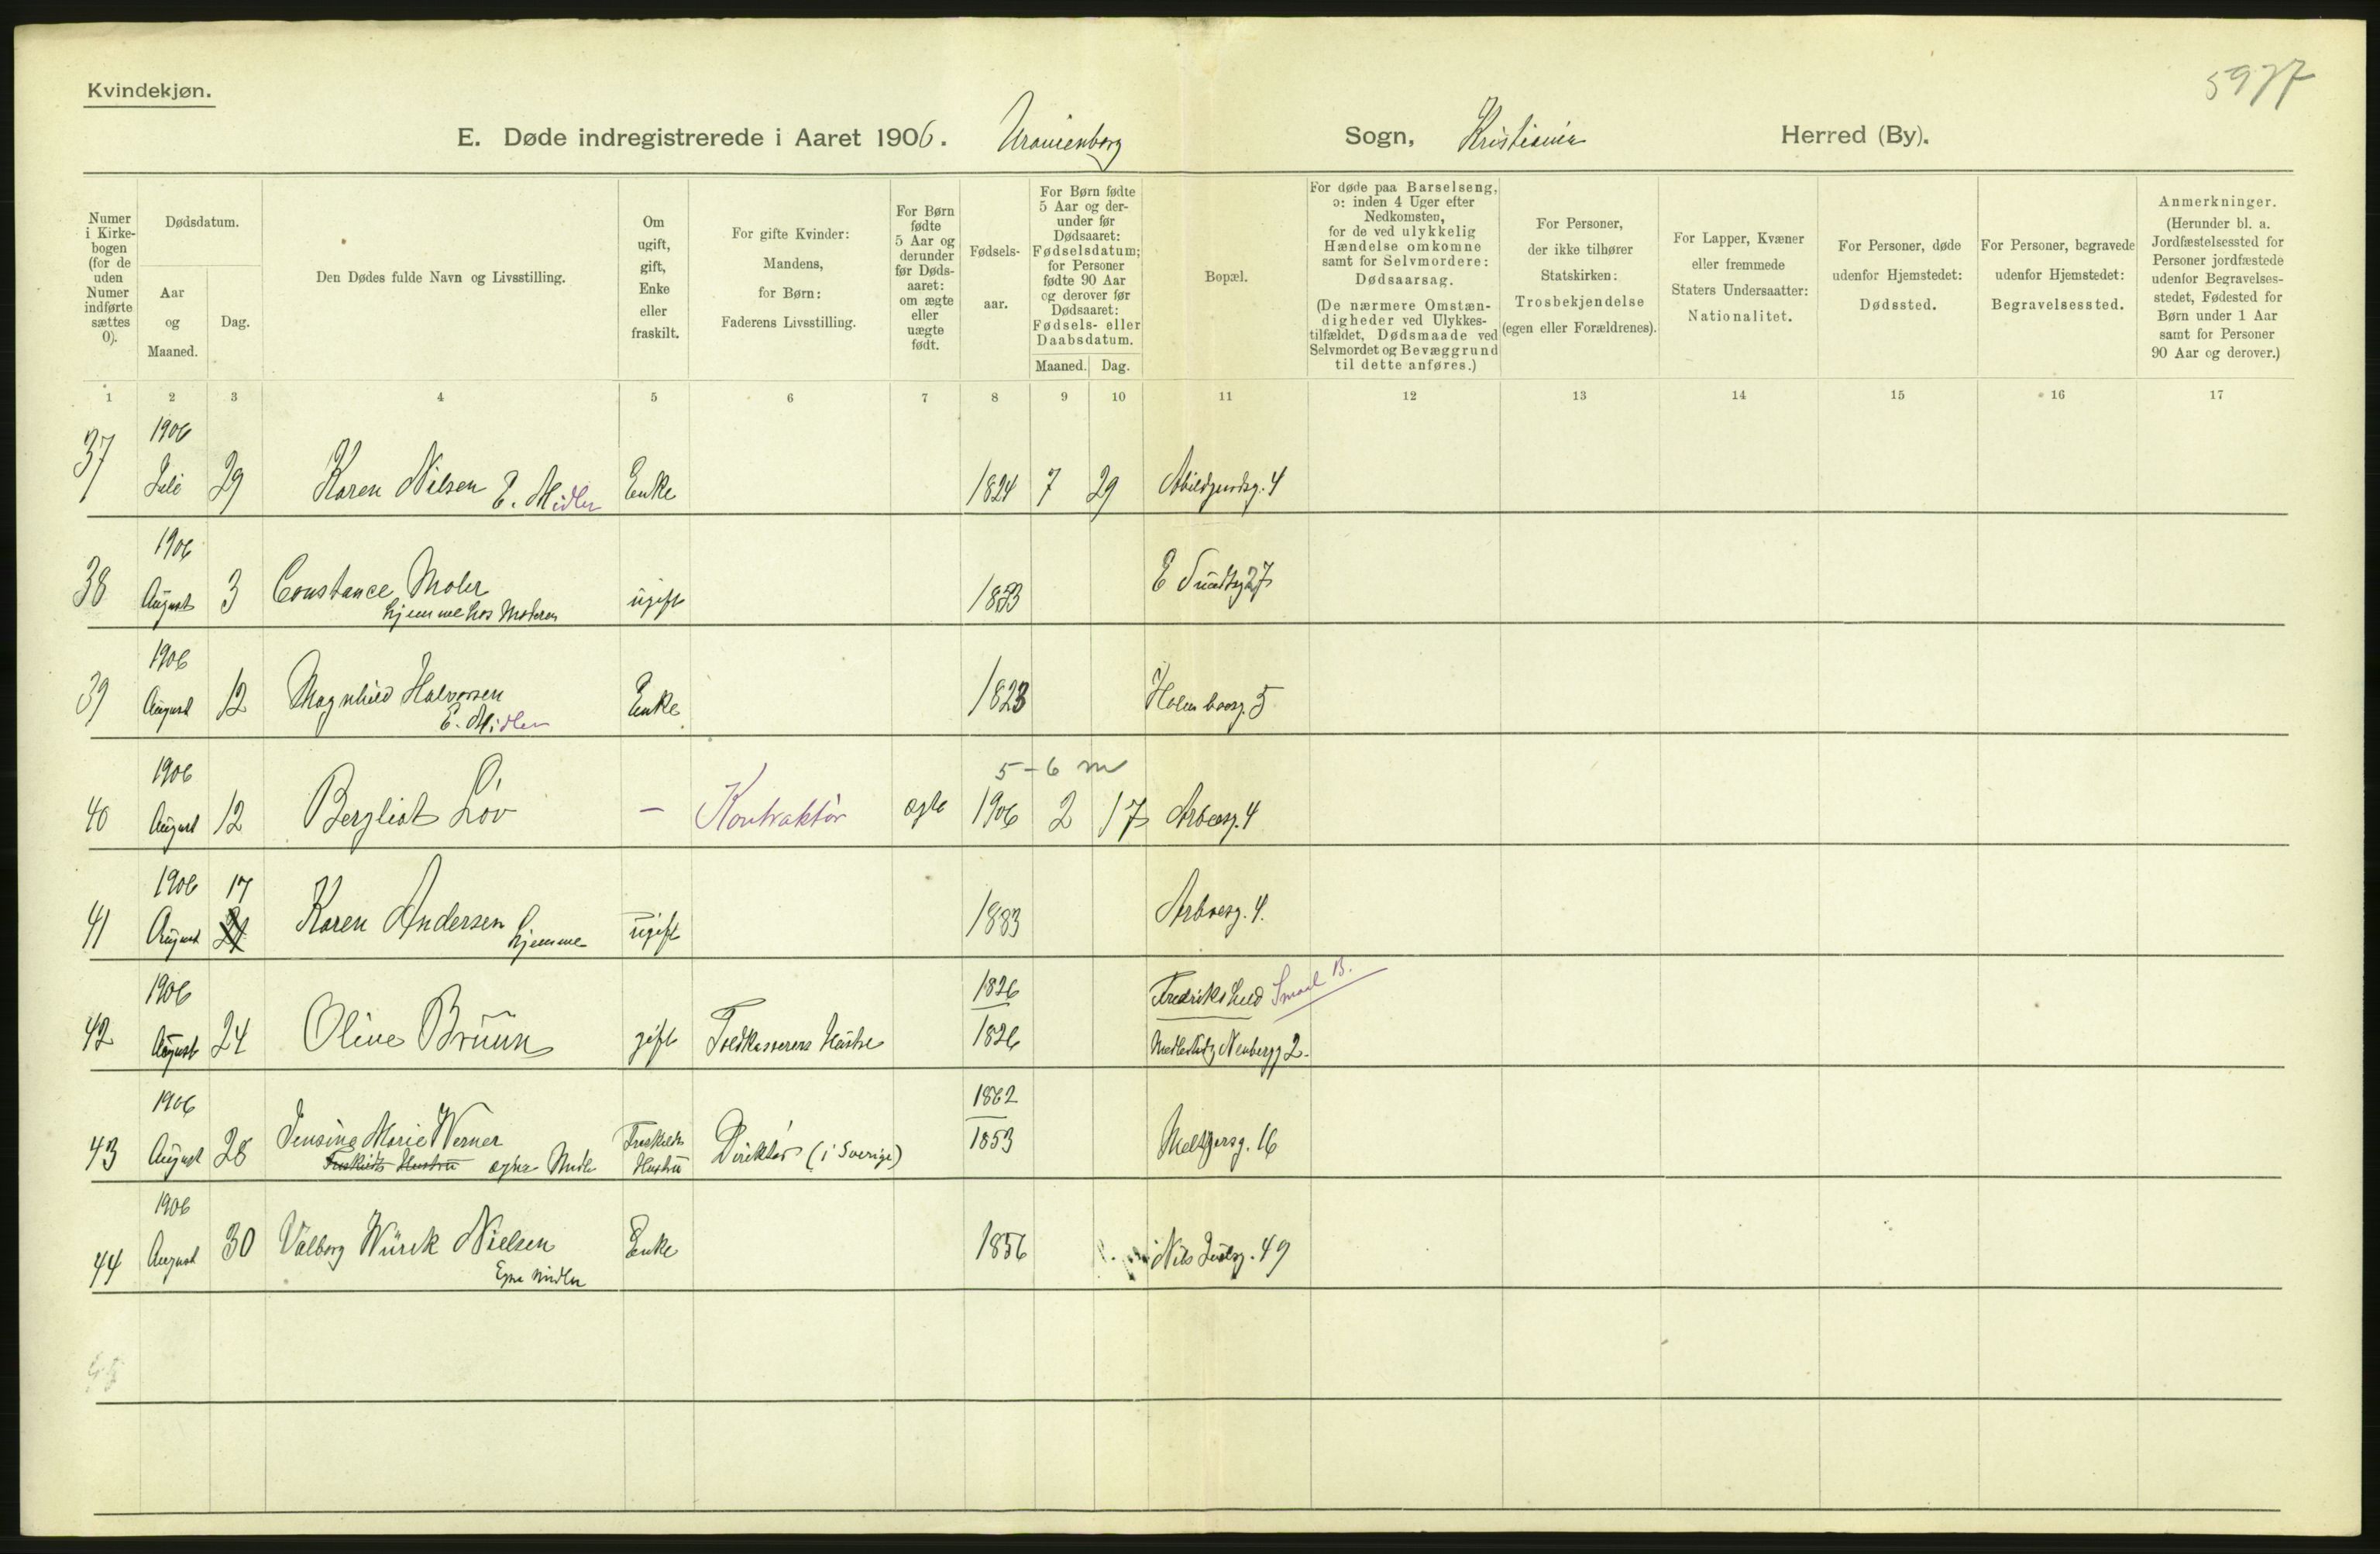 Kvindekjøn.
5977
E. Døde indregistrerede i Aaret 1906. Uranienborg Sogn, Kristiania Herred (By).
Numer i Kirkebogen (for de uden Numer indførte sættes 0).
Dødsdatum.
Aar og Maaned.
Dag.
Den Dødes fulde Navn og Livsstilling.
Om ugift, gift, Enke eller fraskilt.
For gifte Kvinder: Mandens, for Børn: Faderens Livsstilling.
For Børn fødte 5 Aar og derunder før Dødsaaret: om ægte eller uægte født.
Fødselsaar.
For Børn fødte 5 Aar og derunder før Dødsaaret: Fødselsdatum; for Personer fødte 90 Aar og derover før Dødsaaret: Fødsels- eller Daabsdatum.
Maaned. Dag.
Bopæl.
For døde paa Barselseng, ɔ: inden 4 Uger efter Nedkomsten, for de ved ulykkelig Hændelse omkomne samt for Selvmordere: Dødsaarsag.
(De nærmere Omstændigheder ved Ulykkestilfældet, Dødsmaade ved Selvmordet og Bevæggrund til dette anføres.)
For Personer, der ikke tilhører Statskirken: Trosbekjendelse (egen eller Forældrenes).
For Lapper, Kvæner eller fremmede Staters Undersaatter: Nationalitet.
For Personer, døde udenfor Hjemstedet: Dødssted.
For Personer, begravede udenfor Hjemstedet: Begravelsessted.
Anmerkninger. (Herunder bl. a. Jordfæstelsessted for Personer jordfæstede udenfor Begravelsesstedet, Fødested for Børn under 1 Aar samt for Personer 90 Aar og derover.)
1 2 3 4 5 6 7 8 9 10 11 12 13 14 15 16 17
1906
37 Juli 29 Karen Nilsen E. Midler Enke 1824 7 29 Abildgaardsg. 4
1906
38 August 3 Constance Mohr ugift 1853 E Sundtsg 27
hjemme hos Moderen
1906
39 August 12 Magnhild Halvorsen Enke 1823 Holmboesg. 5
E. Midler
1906 5-6 m
40 August 12 Bergliot Löv – Kontraktör ægte 1906 2 17 Arboesg. 4
1906 17
41 August 21 Karen Andersen hjemme ugift 1883 Arboesg. 4.
1906 1826 Fredrikshald Smaal B.
42 August 24 Olive Bruun gift Toldkasserers Hustru 1826 Neubergg 2.
1906 1862
43 August 28 Jensine Marie Werner Fraskilt Hustru Direktör (i Sverige) 1853 Meltzersg. 16
Fraskilt Hustru egne Midler
1906
44 August 30 Valborg Würck Nielsen Enke 1856 Nils Juelsg. 49
Egne midler